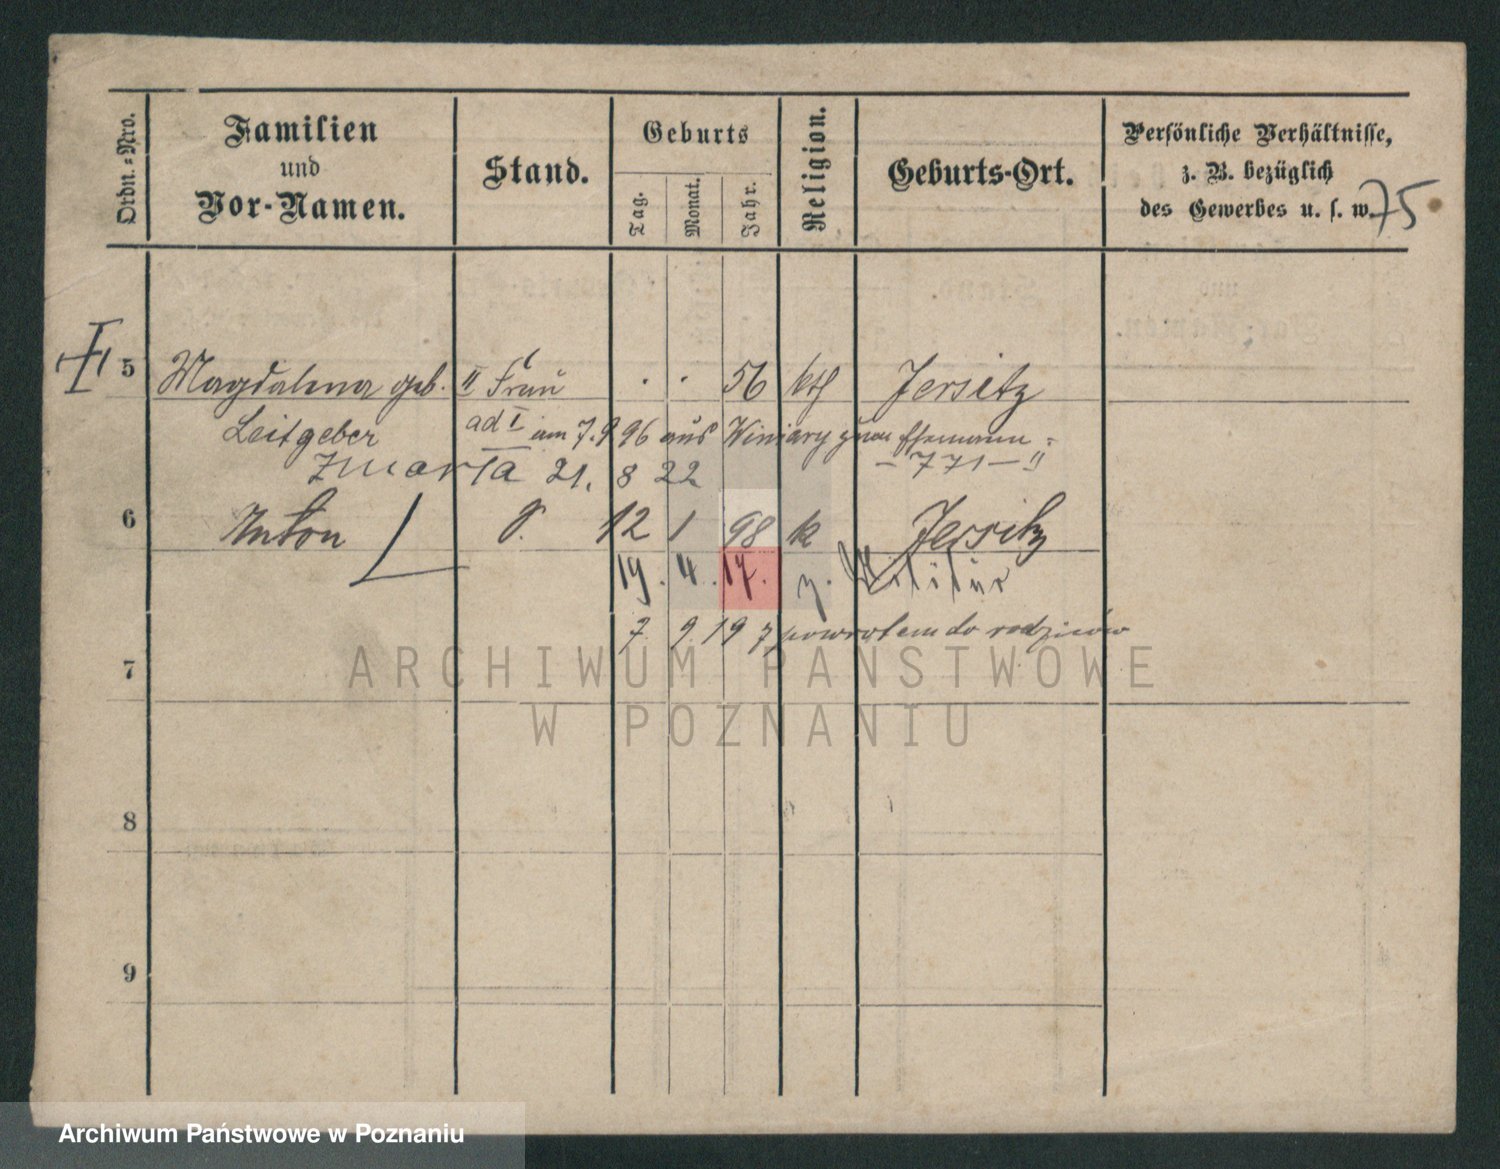 Ordn.-Nro.
Familien
und
Vor-Namen.
Stand.
Geburts
Tag.
Monat.
Jahr.
Religion.
Geburts-Ort.
Persönliche Verhältnisse,
z. B. bezüglich
des Gewerbes u. s. w.
75
5 Magdalena geb. II Frau . . 56 kth Jersitz
Leitgeber ad I am 7.9 96 aus Winiary zum Ehemann =
— 771 — "
Zmarła 21. 8 22
6 Anton S. 12 1 98 k Jersitz
19. 4. 17. z. Militär
7. 9. 197 powrotem do rodziców
7
8
9
ARCHIWUM PAŃSTWOWE
W POZNANIU
Archiwum Państwowe w Poznaniu